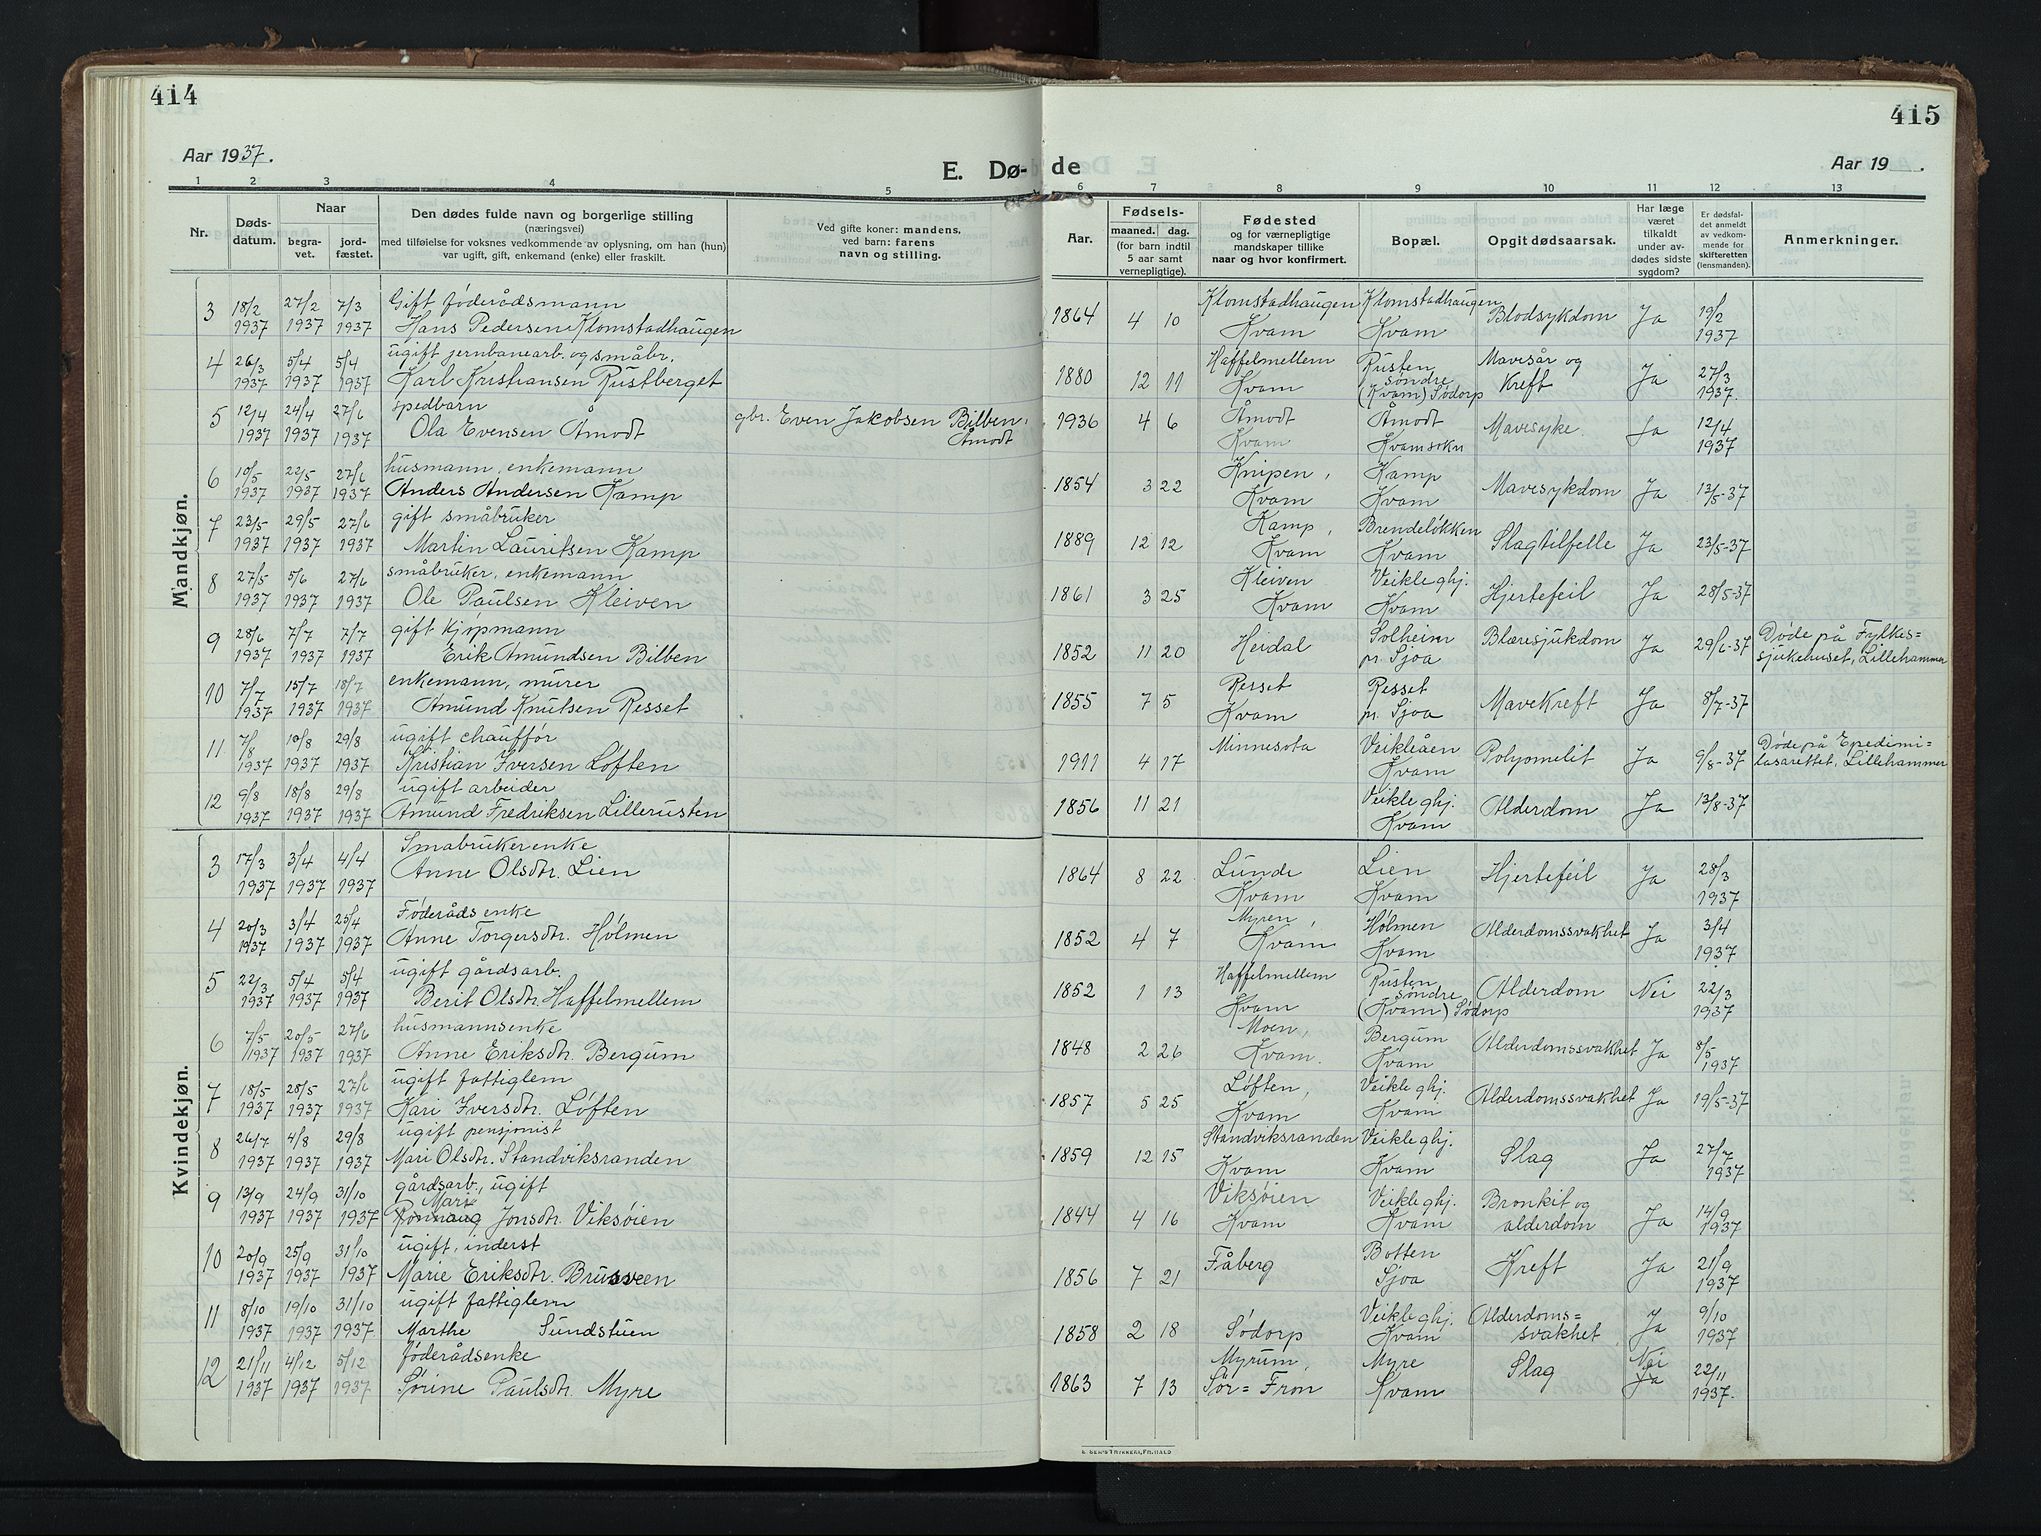 414
415
Aar 1937.
E. Dø-
de
Aar 19 .
1 2 3 4 5
6 7 8 9 10 11 12 13
Nr.
Døds-
datum.
Naar
begra-
vet.
jord-
fæstet.
Den dødes fulde navn og borgerlige stilling
(næringsvei)
med tilføielse for voksnes vedkommende av oplysning, om han (hun)
var ugift, gift, enkemand (enke) eller fraskilt.
Ved gifte koner: mandens,
ved barn: farens
navn og stilling.
Aar.
Fødsels-
maaned. dag.
(for barn indtil
5 aar samt
vernepligtige).
Fødested
og for værnepligtige
mandskaper tillike
naar og hvor konfirmert.
Bopæl.
Opgit dødsaarsak.
Har læge
været
tilkaldt
under av-
dødes sidste
sygdom?
Er dødsfal-
det anmeldt
av vedkom-
mende for
skifteretten
(lensmanden).
Anmerkninger.
Mandkjøn.
3 18/2 27/2 7/3 Gift føderådsmann 1864 4 10 Klomstadhaugen Klomstadhaugen Blodsykdom Ja 19/2
1937 1937 1937 Hans Pedersen Klomstadhaugen Kvam Kvam 1937
4 26/3 5/4 5/4 ugift jernbanearb. og småbr. 1880 12 11 Haffelmellem Rusten Mavesår og Ja 27/3
1937 1937 1937 Karl Kristiansen Rustberget Kvam søndre Kreft 1937.
(Kvam) Sødorp
5 12/4 24/4 27/6 spedbarn gbr. Even Jakobsen Bilben, 1936 4 6 Åmodt Åmodt Mavesyke. Ja 12/4
1937 1937 1937 Ola Evensen Åmodt Åmodt Kvam Kvamsokn 1937
6 10/5 22/5 27/6 husmann, enkemann 1854 3 22 Knipen, Kamp Mavesykdom Ja 13/5-37
1937 1937 1937 Anders Andersen Kamp Kvam Kvam
7 23/5 29/5 27/6 gift småbruker 1889 12 12 Kamp, Brendeløkken Slagtilfelle Ja 23/5-37
1937 1937 1937 Martin Lauritsen Kamp Kvam Kvam
8 27/5 5/6 27/6 småbruker, enkemann 1861 3 25 Kleiven Veikle ghj. Hjertefeil Ja 28/5-37
1937 1937 1937 Ole Paulsen Kleiven Kvam Kvam
9 28/6 7/7 7/7 gift kjøpmann 1852 11 20 Heidal Solheim Blæresjukdom Ja 29/6-37 Døde på Fylkes=
1937 1937 1937 Erik Amundsen Bilben pr. Sjoa sjukehuset, Lillehammer
10 7/7 15/7 18/7 enkemann, murer 1855 7 5 Resset Resset Mavekreft Ja 8/7-37
1937 1937 1937 Amund Knutsen Resset Kvam pr. Sjoa
11 7/8 10/8 29/8 ugift chauffør 1911 4 17 Minnesota Veikleåen Polyomelit Ja 9/8-37 Døde på Epedimi=
1937 1937 1937 Kristian Iversen Løften Kvam lasarettet, Lillehammer
12 9/8 18/8 29/8 ugift arbeider 1856 11 21 Veikle ghj. Alderdom Ja 13/8-37
1937 1937 1937 Amund Fredriksen Lillerusten Kvam
Kvindekjøn.
3 17/3 3/4 4/4 Småbrukerenke 1864 8 22 Lunde Lien Hjertefeil Ja 28/3
1937 1937 1937 Anne Olsdtr. Lien Kvam Kvam 1937
4 20/3 3/4 25/4 Føderådsenke 1852 4 7 Myren, Holmen Alderdomssvakhet Ja 3/4
1937 1937 1937 Anne Torgersdtr. Holmen Kvam Kvam 1937
5 22/3 5/4 5/4 ugift gårdsarb. 1852 1 13 Haffelmellem Rusten Alderdom Nei 22/3
1937 1937 1937 Berit Olsdtr. Haffelmellem Kvam søndre 1937
(Kvam) Sødorp
6 7/5 20/5 27/6 husmannsenke 1848 2 26 Moen, Bergum Alderdomssvakhet Ja 8/5
1937 1937 1937 Anne Eriksdtr. Bergum Kvam. Kvam 1937
7 18/5 28/5 27/6 ugift fattiglem 1857 5 25 Løften, Veikle ghj. Alderdomssvakhet Ja 19/5-37
1937 1937 1937 Kari Iversdtr. Løften Kvam Kvam
8 26/7 4/8 29/8 ugift pensjonist 1859 12 15 Standviksranden Veikle ghj. Slag Ja 27/7
1937 1937 1937 Mari Olsdtr. Standviksranden Kvam Kvam 1937
9 13/9 24/9 31/10 gårdsarb., ugift 1844 4 16 Viksøien Veikle ghj. Bronkit og Ja 14/9
Mari
1937 1937 1937 Rønnaug Jonsdtr. Viksøien Kvam Kvam alderdom 1937
10 20/9 25/9 31/10 ugift, inderst 1856 7 21 Fåberg Botten Kreft Ja 21/9
1937 1937 1937 Marie Eriksdtr. Brusveen Sjoa 1937
11 8/10 19/10 31/10 ugift fattiglem 1858 2 18 Sødorp Veikle ghj. Alderdoms= Ja 9/10
1937 1937 1937 Marthe Sundstuen Kvam svakhet 1937
12 21/11 4/12 5/12 føderådsenke 1863 7 13 Myrum, Myre Slag Nei 22/11
1937 1937 1937 Sørine Paulsdtr. Myre Sør=Fron Kvam Ja 1937.